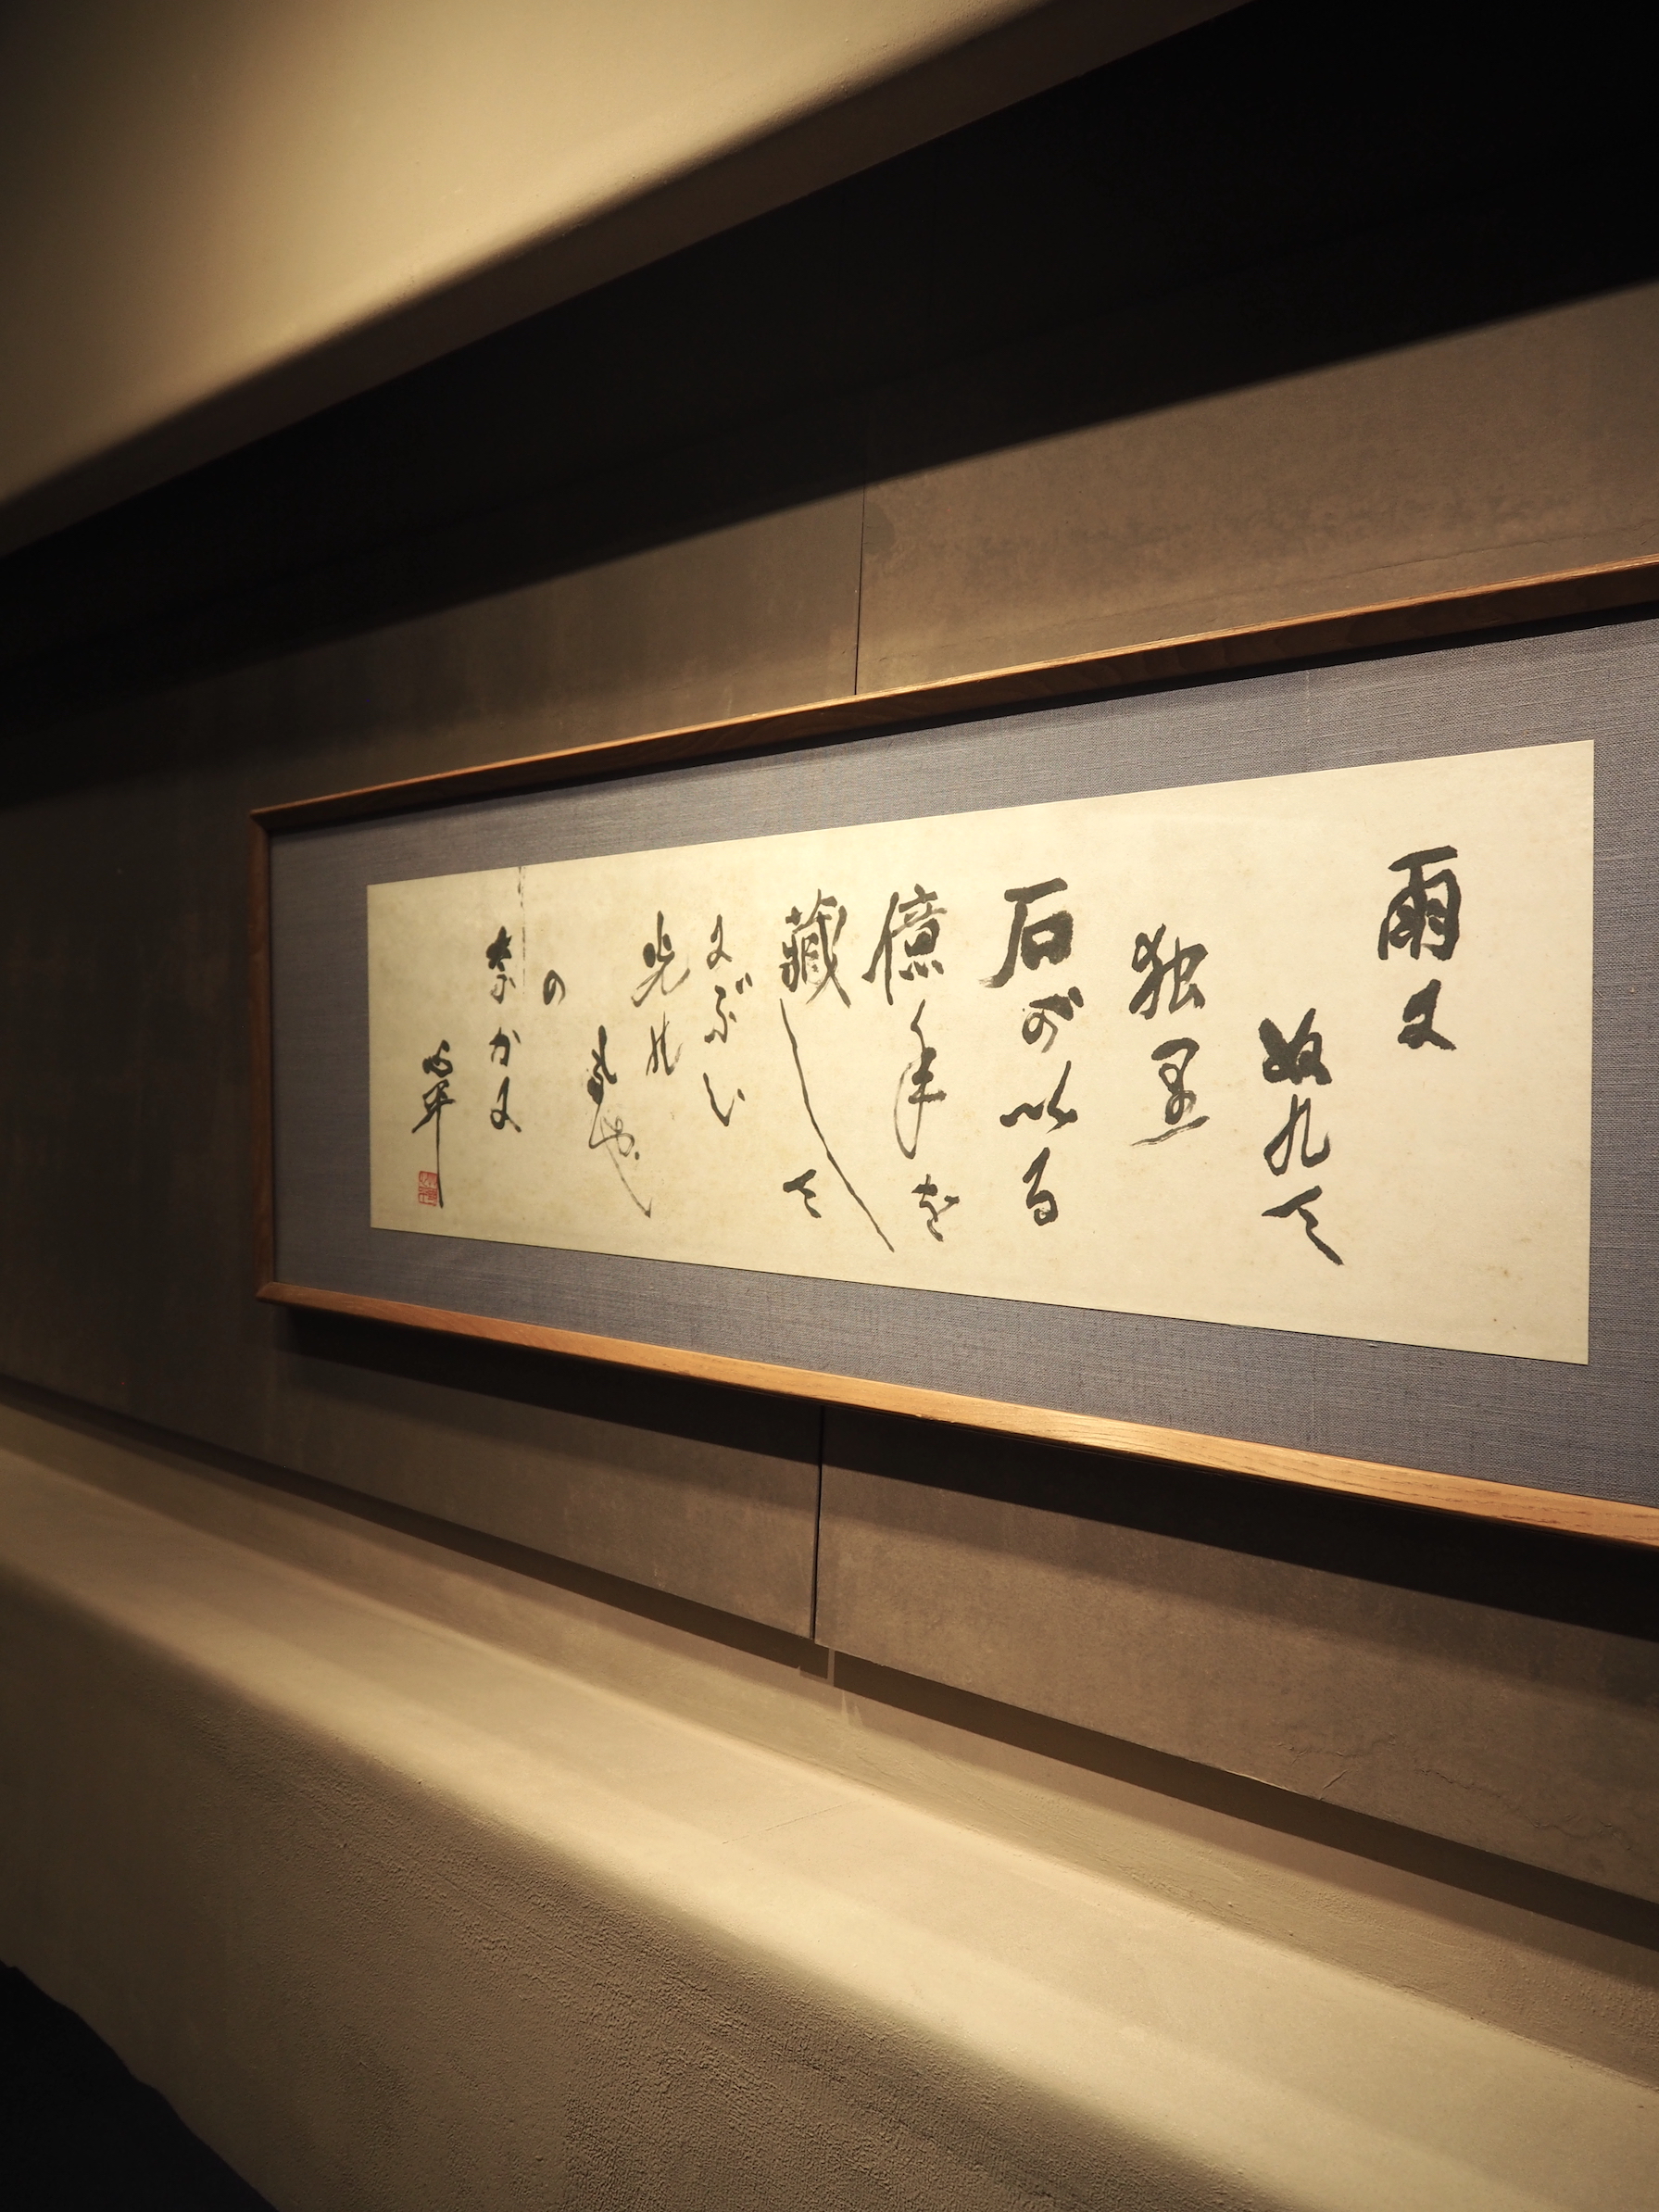 雨に
ぬれて
独り
石がいる
億年を
藏して
にぶい
光の
もや
の
なかに
心平